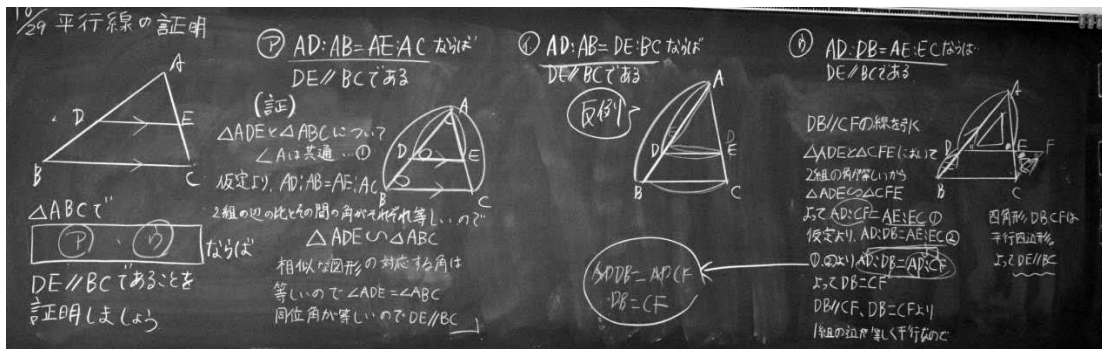 10/29 平行線の証明
A
D
E
B
C
△ABCで
ア . ウ ならば
DE//BCであることを
証明しましょう
ア AD:AB=AE:AC ならば
DE//BCである
(証)
△ADEと△ABCについて
∠Aは共通…①
仮定より、AD:AB=AE:AC
2組の辺の比とその間の角がそれぞれ等しいので
△ADE∽△ABC
相似な図形の対応する角は
等しいので∠ADE=∠ABC
同位角が等しいのでDE//BC
A
D
E
B
C
イ AD:AB=DE:BCならば
DE//BCである
反例
A
D
E
D
E
B
C
AD:DB=AD:CF
DB=CF
ウ AD:DB=AE:ECならば
DE//BCである
DB//CFの線を引く
△ADEと△CFEにおいて
2組の角が等しいから
△ADE∽△CFE
よってAD:CF=AE:EC①
仮定より、AD:DB=AE:EC②
①②よりAD:DB=AD:CF
よってDB=CF
DB//CF、DB=CFより
1組の辺が等しく平行なので
A
D
E
F
B
C
四角形DBCFは
平行四辺形
よってDE//BC